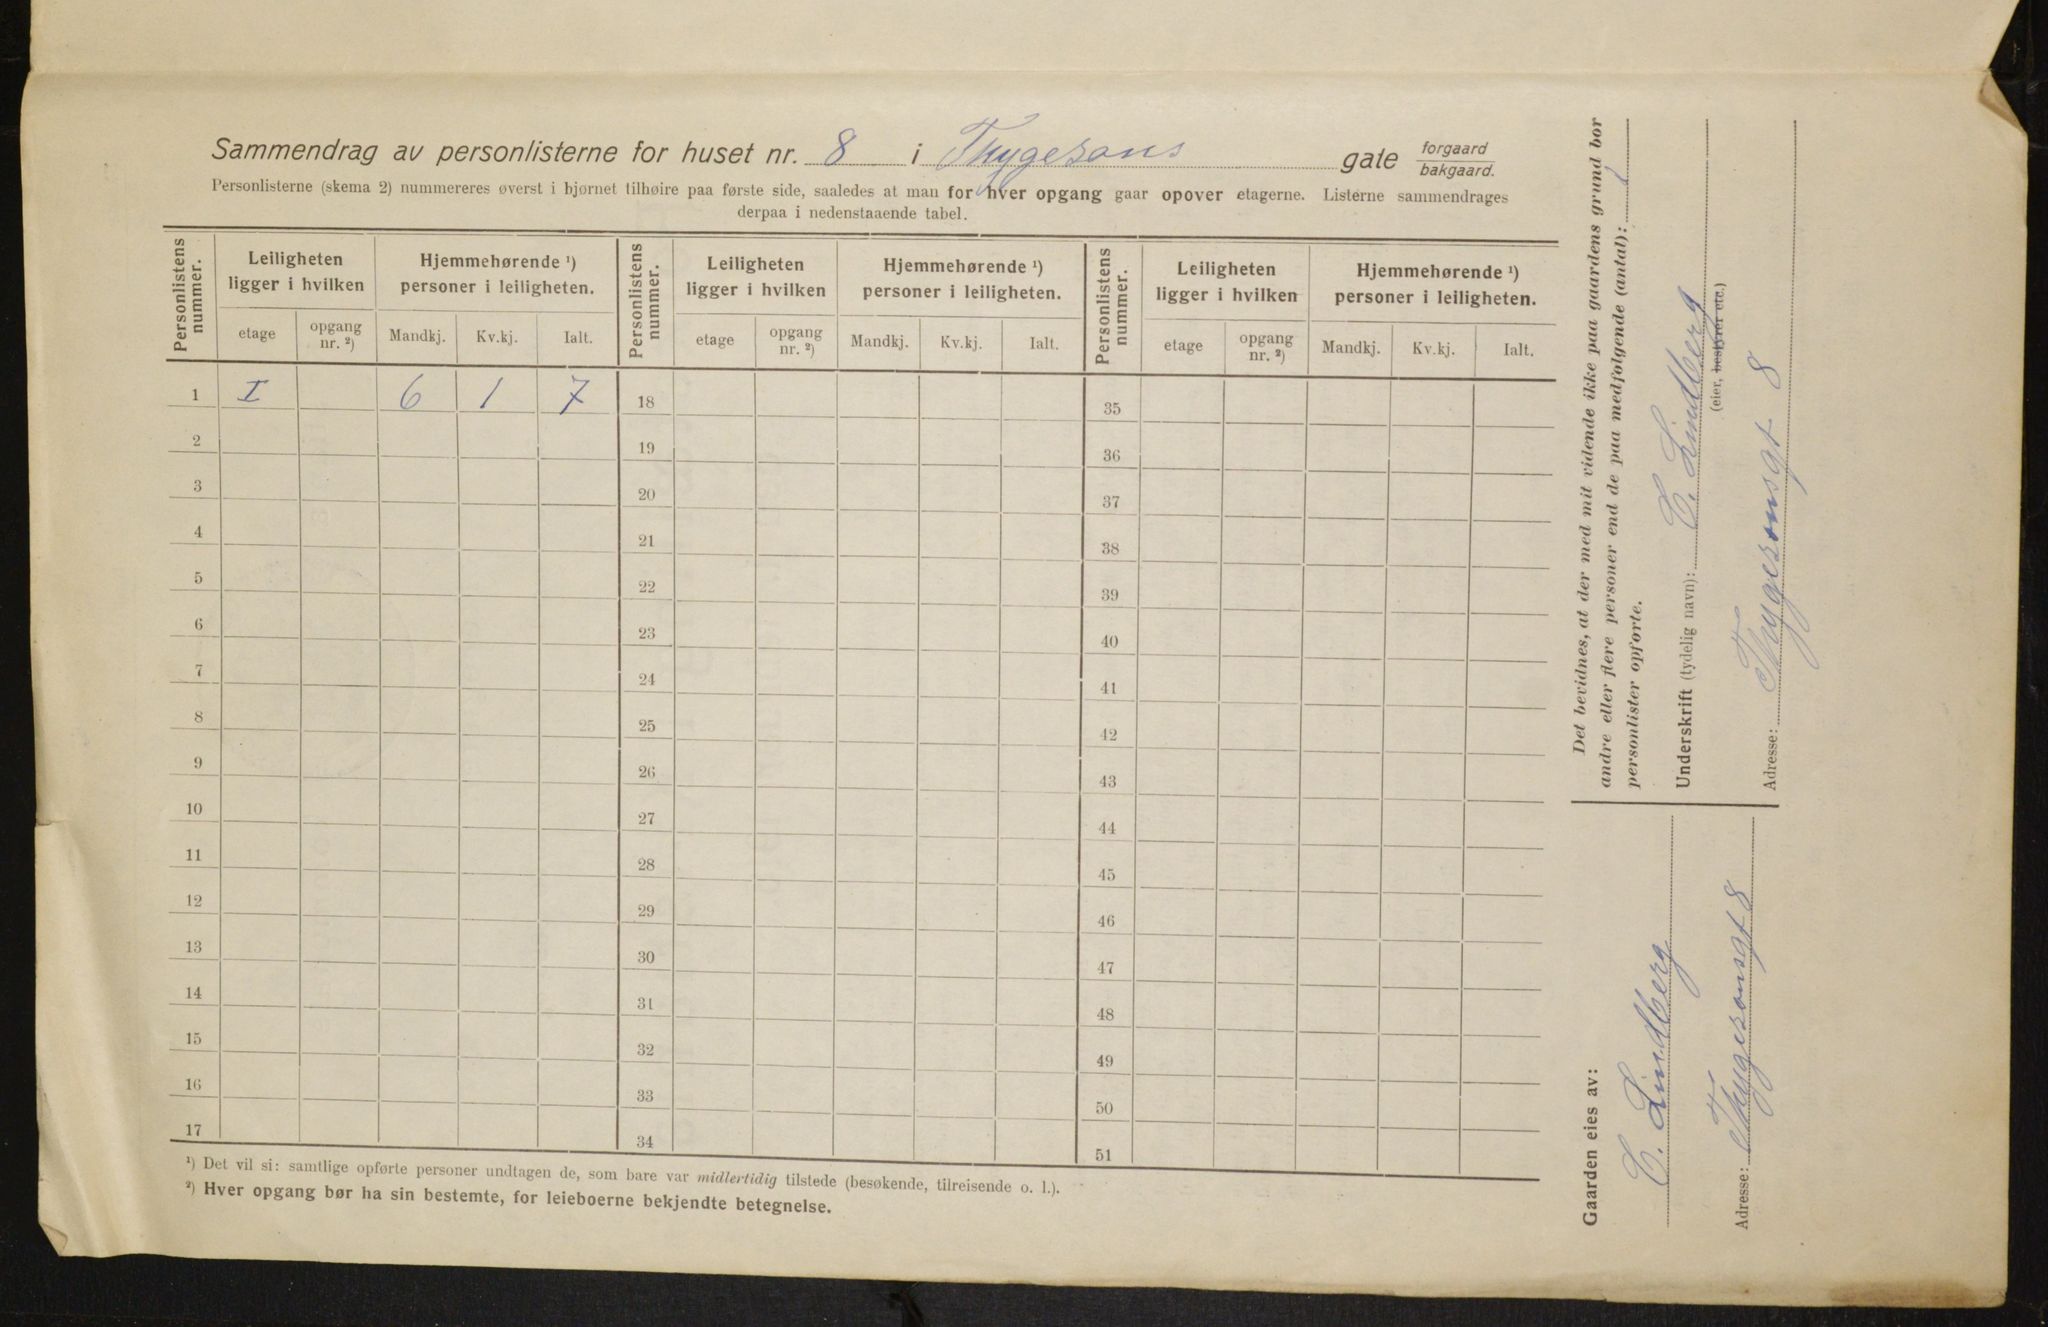 Sammendrag av personlisterne for huset nr. 8 i Thygesons gate forgaard bakgaard.
Personlisterne (skema 2) nummereres øverst i hjørnet tilhøire paa første side, saaledes at man for hver opgang gaar opover etagerne. Listerne sammendrages
derpaa i nedenstaaende tabel.
Personlistens nummer. Leiligheten ligger i hvilken Hjemmehørende ¹) personer i leiligheten. Personlistens nummer. Leiligheten ligger i hvilken Hjemmehørende ¹) personer i leiligheten. Personlistens nummer. Leiligheten ligger i hvilken Hjemmehørende ¹) personer i leiligheten.
etage opgang nr. ²) Mandkj. Kv.kj. Ialt. etage opgang nr. ²) Mandkj. Kv.kj. Ialt. etage opgang nr. ²) Mandkj. Kv.kj. Ialt.
1 I 6 1 7 18 35
2 19 36
3 20 37
4 21 38
5 22 39
6 23 40
7 24 41
8 25 42
9 26 43
10 27 44
11 28 45
12 29 46
13 30 47
14 31 48
15 32 49
16 33 50
17 34 51
¹) Det vil si: samtlige opførte personer undtagen de, som bare var midlertidig tilstede (besøkende, tilreisende o. l.).
²) Hver opgang bør ha sin bestemte, for leieboerne bekjendte betegnelse.
Det bevidnes, at der med mit vidende ikke paa gaardens grund bor
andre eller flere personer end de paa medfølgende (antal): 1
personlister opførte.
Underskrift (tydelig navn): C. Lindberg
(eier, bestyrer etc.)
Adresse: Thygesonsgt. 8
Gaarden eies av:
C. Lindberg
Adresse: Thygesonsgt 8